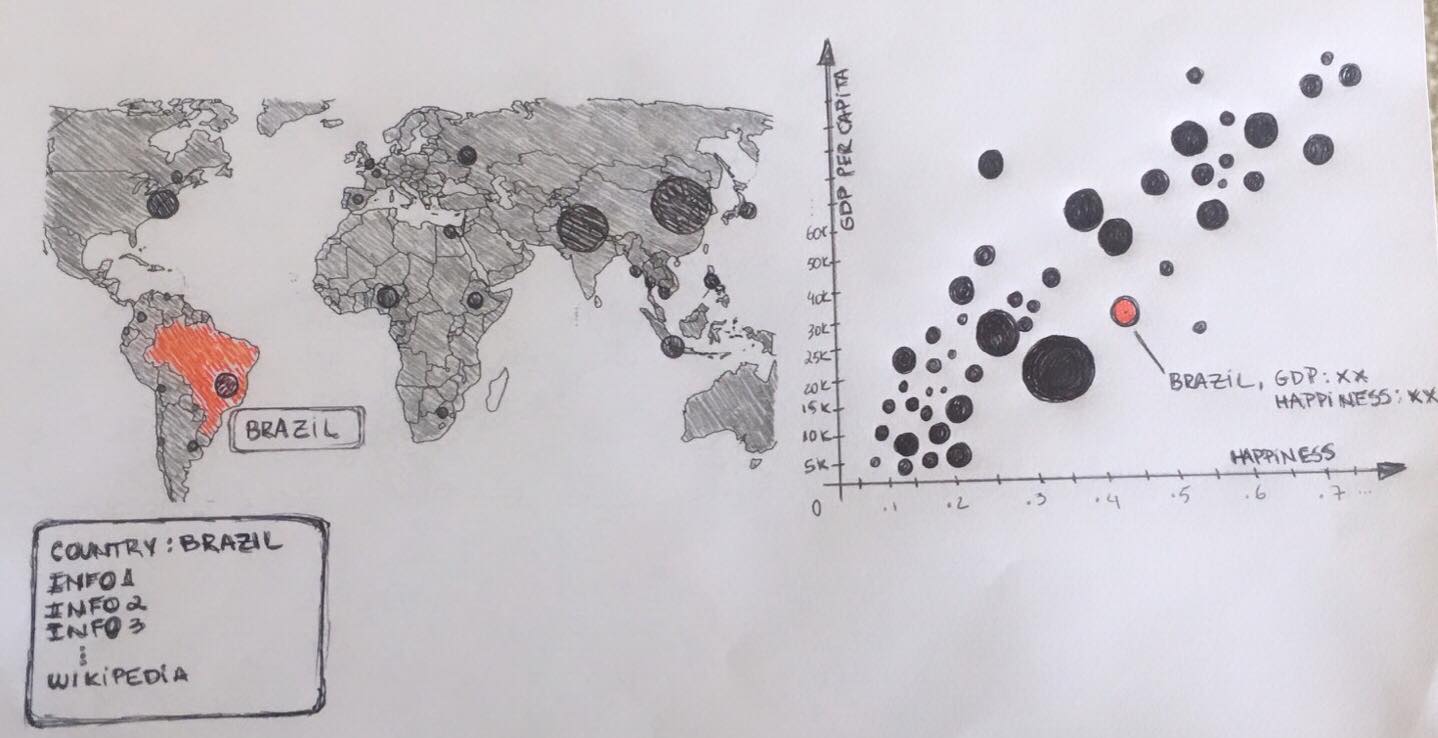 BRAZIL
COUNTRY : BRAZIL
INFO 1
INFO 2
INFO 3
WIKIPEDIA
GDP PER CAPITA
60K
50K
40K
30K
25K
20K
15K
10K
5K
0
.1 .2 .3 .4 .5 .6 .7 ...
HAPPINESS
BRAZIL, GDP : XX
HAPPINESS : XX